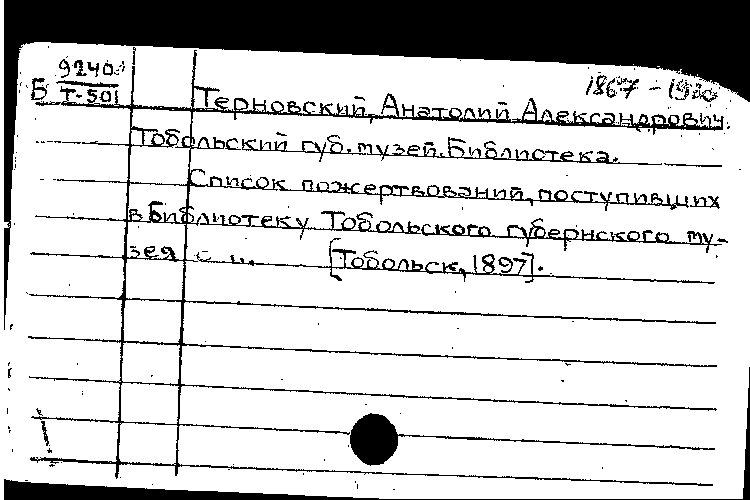 Б 9240
Т-501
1867 - 1920
Терновский, Анатолий Александрович.
Тобольский губ. музей. Библиотека.
Список пожертвований, поступивших
в Библиотеку Тобольского губернского му-
зея с
[Тобольск, 1897].